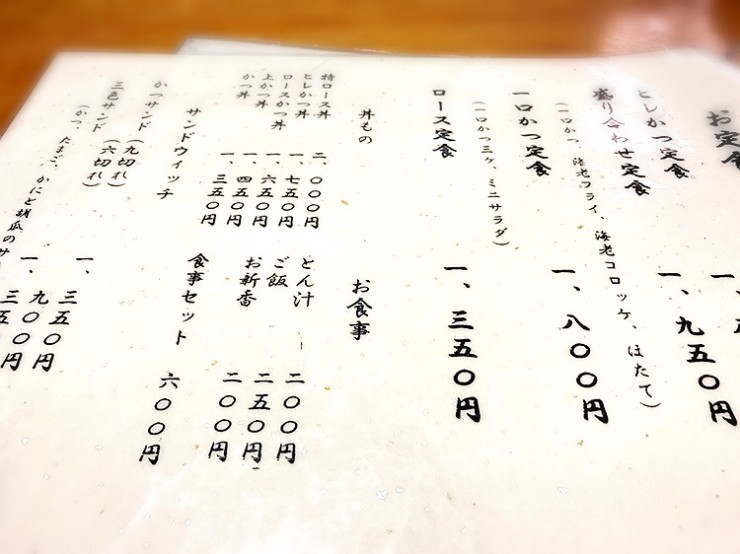 お定食
ヒレかつ定食
盛り合わせ定食 一、九五〇円
(一口かつ、海老フライ、海老コロッケ、ほたて)
一口かつ定食 一、八〇〇円
(一口かつ三ケ、ミニサラダ)
ロース定食 一、三五〇円
丼もの
特ロース丼 二、〇〇〇円
ヒレかつ丼 一、七五〇円
ロースかつ丼 一、六五〇円
上かつ丼 一、四五〇円
かつ丼 一、三五〇円
お食事
とん汁 二〇〇円
ご飯 二五〇円
お新香 二〇〇円
食事セット 六〇〇円
サンドウィッチ
かつサンド(九切れ) 一、三五〇円
三色サンド(六切れ) 一、九〇〇円
(かつ、たまご、かにと胡瓜のサ
三五 円